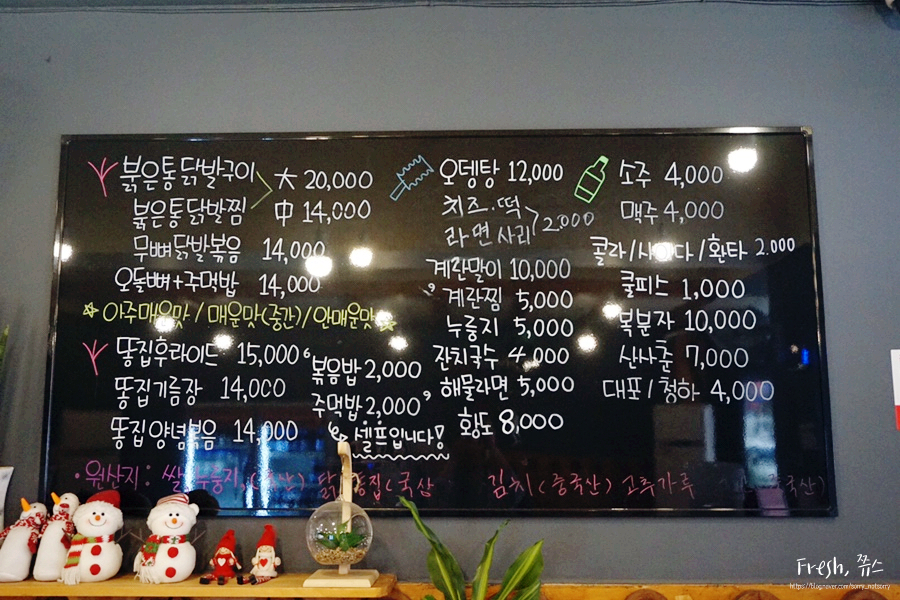 붉은통닭발구이 大 20,000
붉은통닭발찜 中 14,000
무뼈닭발볶음 14,000
오돌뼈+주먹밥 14,000
☆아주매운맛/매운맛(중간)/안매운맛☆
똥집후라이드 15,000
똥집기름장 14,000
똥집양념볶음 14,000
볶음밥 2,000
주먹밥 2,000
셀프입니다!
오뎅탕 12,000
치즈·떡
라면사리 2.000
계란말이 10,000
계란찜 5,000
누룽지 5,000
잔치국수 4,000
해물라면 5,000
황도 8,000
소주 4,000
맥주 4,000
콜라/사이다/환타 2.000
쿨피스 1,000
복분자 10,000
산사춘 7,000
대포/청하 4,000
·원산지: 쌀,누룽지 닭 똥집(국산 김치(중국산) 고추가루 중국산)
Fresh, 쮸스
https://blog.naver.com/sorry_notsorry